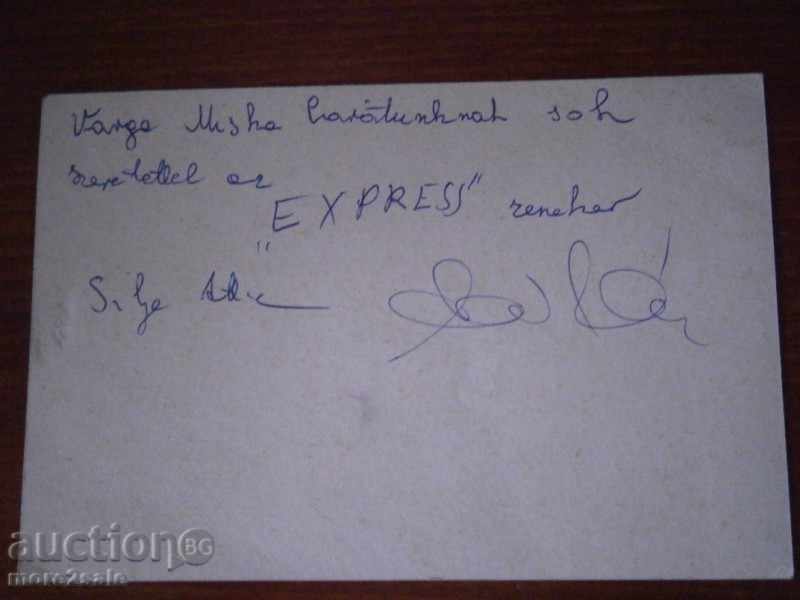 Varga Miska barátunknak sok
szeretettel az
„EXPRESS" zenekar
auctionBG
more2sale